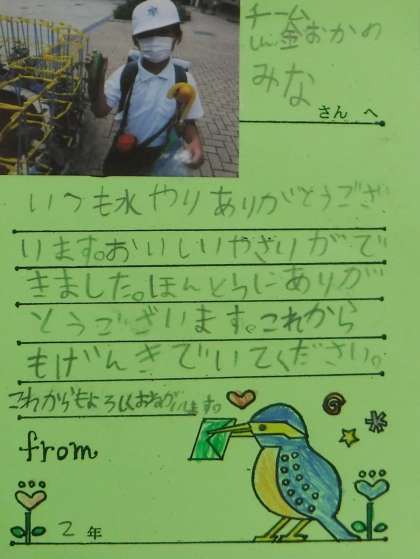 チーム
しん金おかめ
みな
さん へ
いつも水やりありがとうござ
います。おいしいやさいがで
きました。ほんとうにありが
とうございます。これから
もげんきでいてください。
これからもよろしくおねがいします。
from
2 年